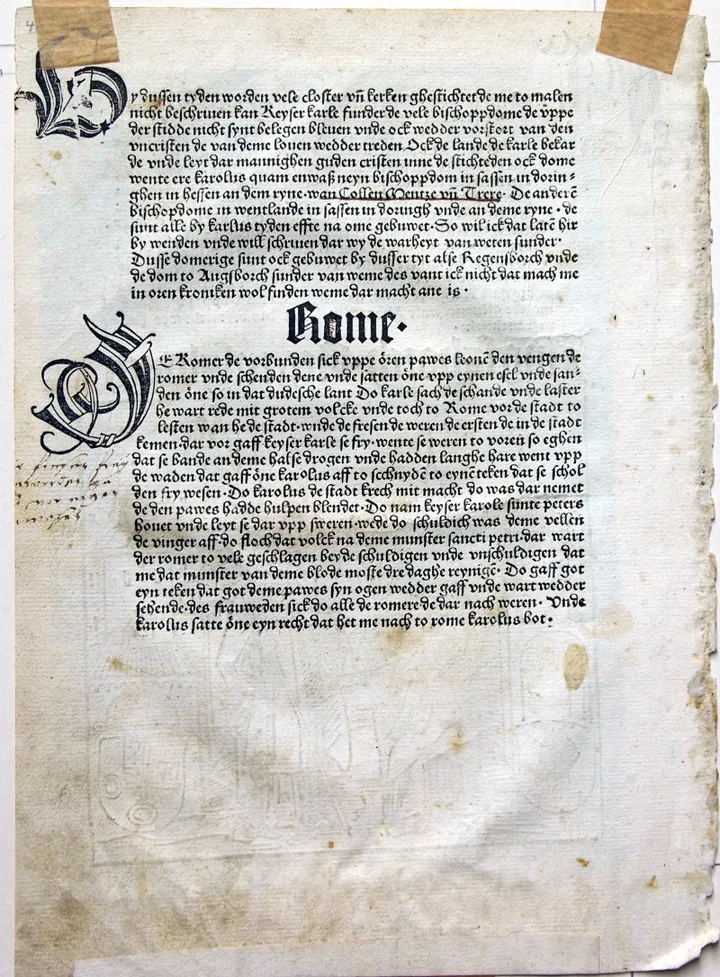 By dussen tyden worden vele closter vn̄ kerken ghestichtet de me to malen
nicht beschriuen kan Keyser karle funder de vele bischoppdome de vppe
der stidde nicht synt belegen bleuen vnde ock wedder vorstort van den
vncristen de van deme louen wedder treden Ock de lande de karle bekar
de vnde leyt dar mannighen guden cristen inne de stichteden ock dome
wente ere karolus quam enwaß neyn bischoppdom in sassen in dorin-
ghen in hessen an dem ryne·wan Collen Mentze vn̄ Trere· De anderē
bischopdome in wentlande in sassen in doringh vnde an deme ryne · de
sint alle by karlus tyden effte na ome gebuwet·So wil ick dat latē hir
by wenden vnde will schriuen dar wy de warheyt van weten sunder·
Dusse domerige sint ock gebuwet by dusser tyt alse Regensborch vnde
de dom to Augsborch sunder van weme des vant ick nicht dat mach me
in oren kroniken wol finden weme dar macht ane is ·
Rome·
DE Romer de vorbunden sick vppe ören pawes leonē den vengen de
romer vnde schenden dene vnde satten öne vpp eynen esel vnde san-
den öne so in dat dudesche lant Do karle sach de schande vnde laster
he wart rede mit grotem volcke vnde toch to Rome vor de stadt to
lesten wan he de stadt·vnde de fresen de weren de ersten de in de stadt
kemen·dar vor gaff keyser karle se fry·wente se weren to voren so eghen
dat se bande an deme halse drogen vnde hadden langhe hare went vpp
de waden dat gaff öne karolus aff to scchnydē to eynē teken dat se schol
den fry wesen·Do karolus de stadt krech mit macht do was dar nemet
de den pawes hadde hulpen blendet·Do nam keyser karole sunte peters
houet vnde leyt se dar vpp sweren·we de do schuldich was deme vellen
de vinger aff·do floch dat volck na deme munster sancti petri·dar wart
der romer to vele geschlagen beyde schuldigen vnde vnschuldigen dat
me dat munster van deme blode moste dre daghe reynigē· Do gaff got
eyn teken dat got deme pawes syn ogen wedder gaff vnde wart wedder
sehende·des frauweden sick do alle de romere de dar nach weren· Vnde
karolus satte öne eyn recht dat het me nach to rome karolus bot·